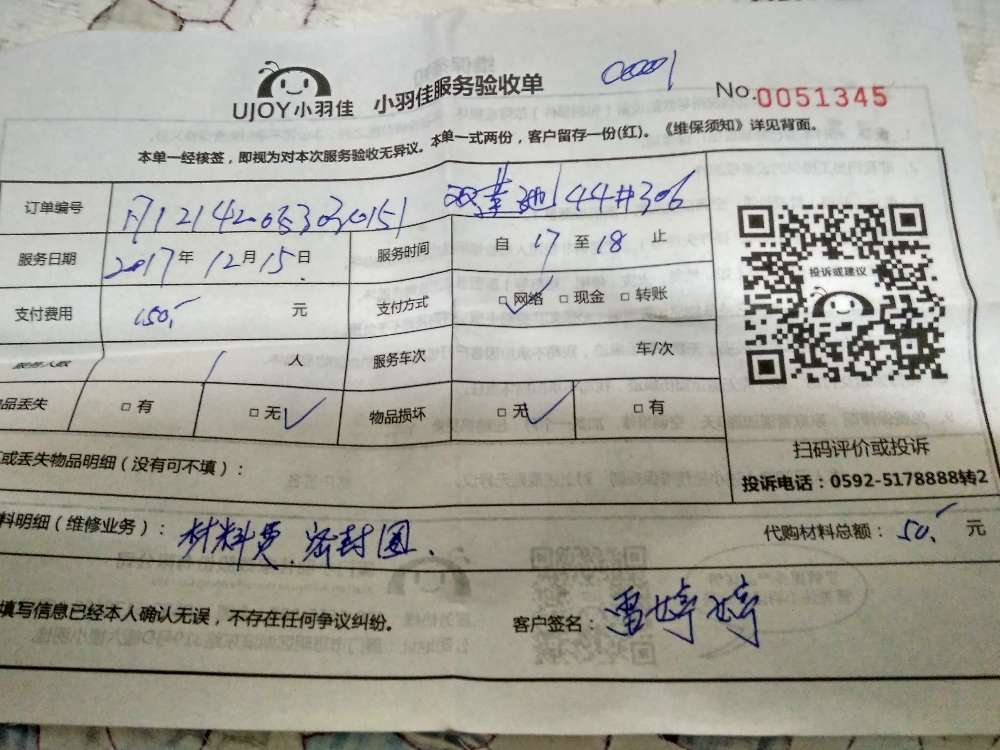 UJOY小羽佳 小羽佳服务验收单 00001 No.0051345
本单一经核签，即视为对本次服务验收无异议。本单一式两份，客户留存一份(红)。《维保须知》详见背面。
订单编号 44#306
服务日期 2017年12月15日 服务时间 自17至18止
支付费用 150元 支付方式 □网络 □现金 □转账
服务人数 1人 服务车次 车/次
品丢失 □有 □无 物品损坏 □无 □有
投诉或建议
扫码评价或投诉
投诉电话：0592-5178888转2
或丢失物品明细（没有可不填）：
料明细（维修业务）：材料费、密封圈、 代购材料总额：50元
填写信息已经本人确认无误，不存在任何争议纠纷。 客户签名：雷婷婷